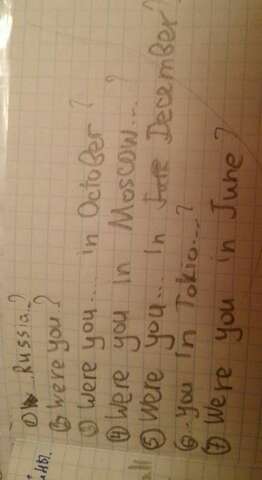 ① ... Russia...?
② Were you?
③ Were you.... in October?
④ Were you in Moscow....?
⑤ Were you... in December?
⑥ ...you in Tokio....?
⑦ Were you in June?
ины.
all